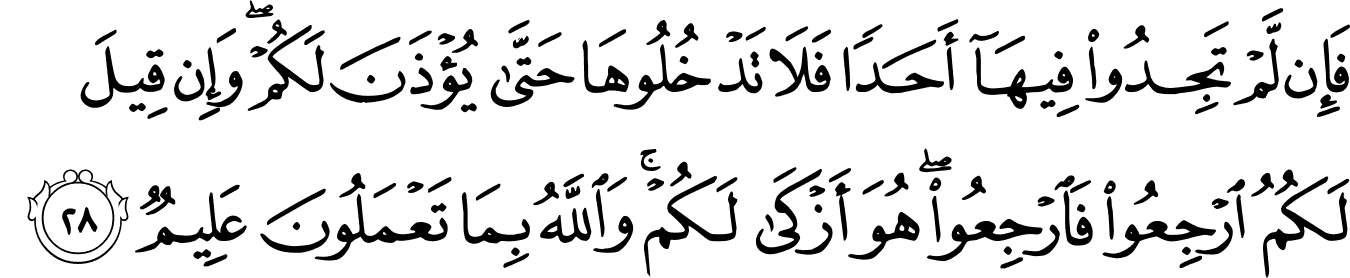 فَإِن لَّمْ تَجِدُوا۟ فِيهَآ أَحَدًا فَلَا تَدْخُلُوهَا حَتَّىٰ يُؤْذَنَ لَكُمْ ۖ وَإِن قِيلَ
لَكُمُ ٱرْجِعُوا۟ فَٱرْجِعُوا۟ ۖ هُوَ أَزْكَىٰ لَكُمْ ۚ وَٱللَّهُ بِمَا تَعْمَلُونَ عَلِيمٌ ٢٨